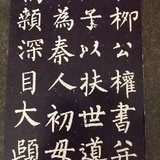 柳公權書并
子以扶世道
為秦人初母
顙深目大頤